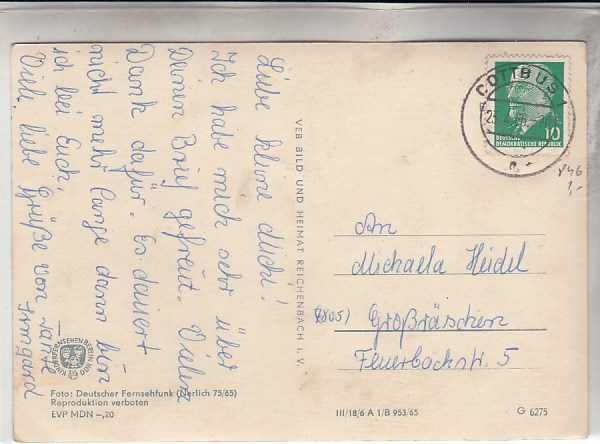 Liebe kleine Michi!
Ich habe mich sehr über
Deinen Brief gefreut. Vielen
Dank dafür. Es dauert
nicht mehr lange dann bin
ich bei Euch.
Viele liebe Grüße von Tante
Irmgard
KINDERFERNSEHEN BERLIN DDR
Foto: Deutscher Fernsehfunk (Nerlich 75/65)
Reproduktion verboten
EVP MDN –,20
VEB BILD UND HEIMAT REICHENBACH I. V.
COTTBUS 1
10
DEUTSCHE
DEMOKRATISCHE REPUBLIK
846
1,-
An
Michaela Heidel
(7805) Großräschen
Feuerbachstr. 5
III/18/6 A 1/B 953/65
G 6275